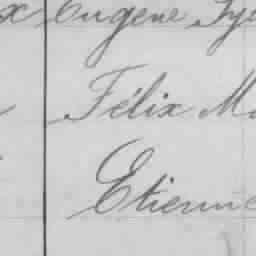 x Eugène
Félix M
Etienne